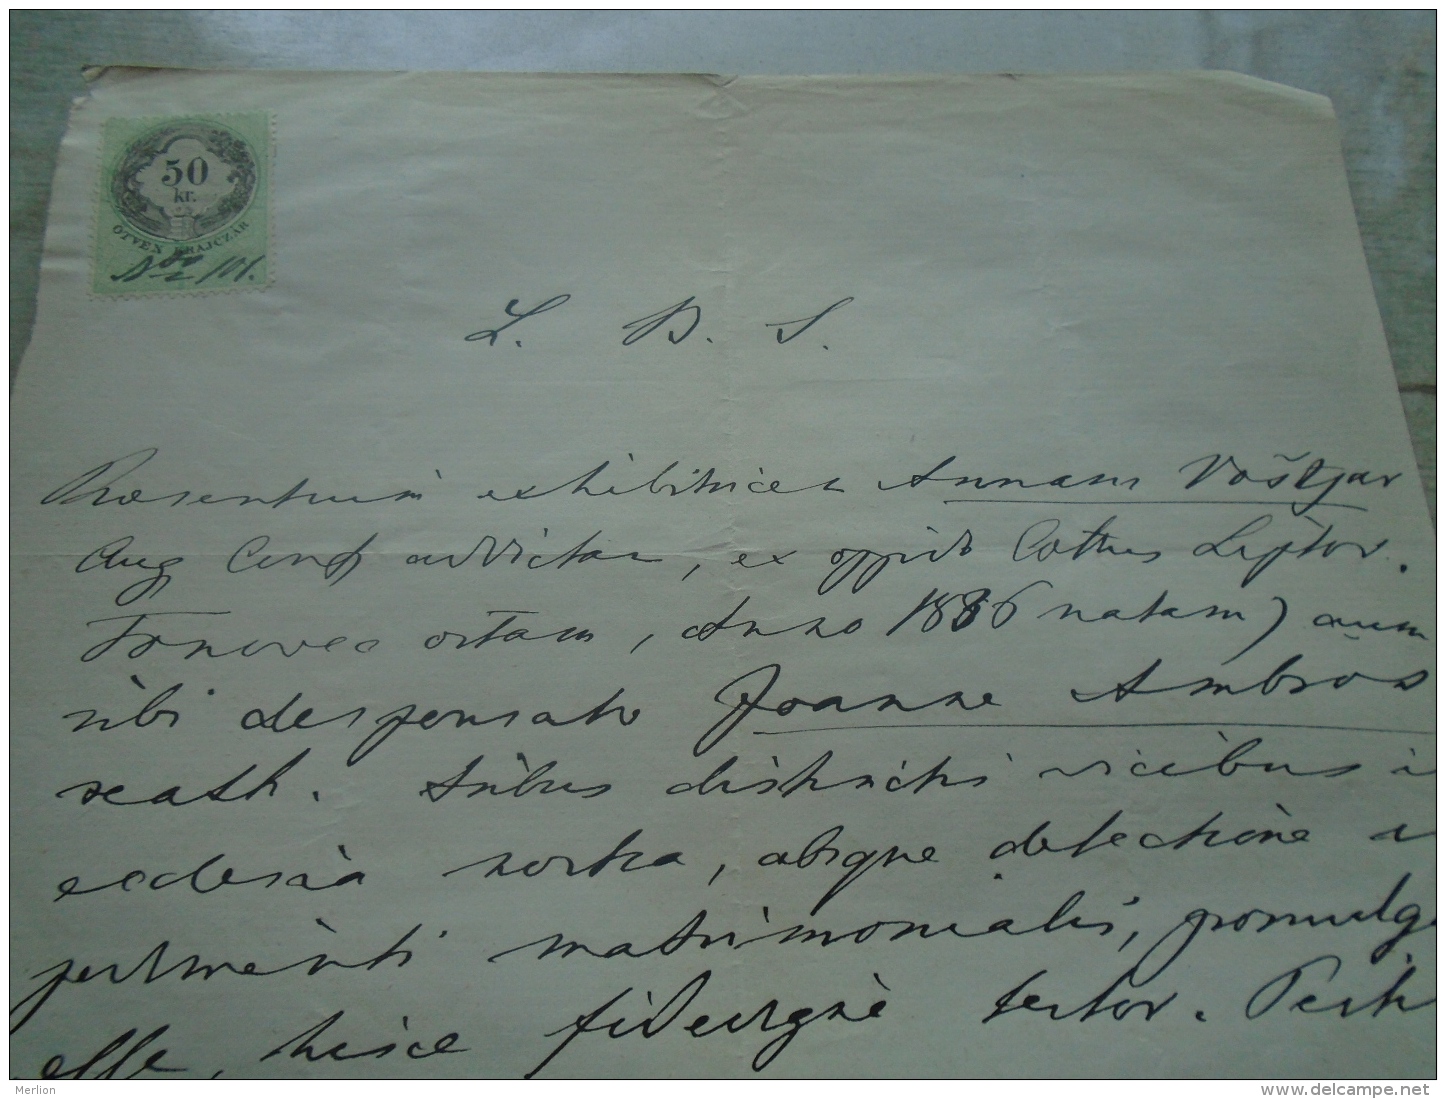 50
kr.
ÖTVEN KRAJCZÁR
L. B. S.
Praesentium exhibitricem Annam Voštjar
Aug Conf addictam, ex oppido Cottus Liptov.
Trnovec ortam, Anno 1886 natam) cum
sibi despensato Joanne Ambros
cath. tribus distinctis vicibus i
ecclesia nostra, absque detectione
matrimonialis, promulg
esse, hisce fideique testor. Pest
Merlion
www.delcampe.net